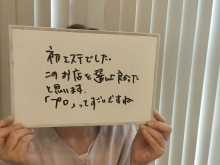 初エステでした。
このお店を選んで良かった
と思います。
「プロ」ってすごいですね